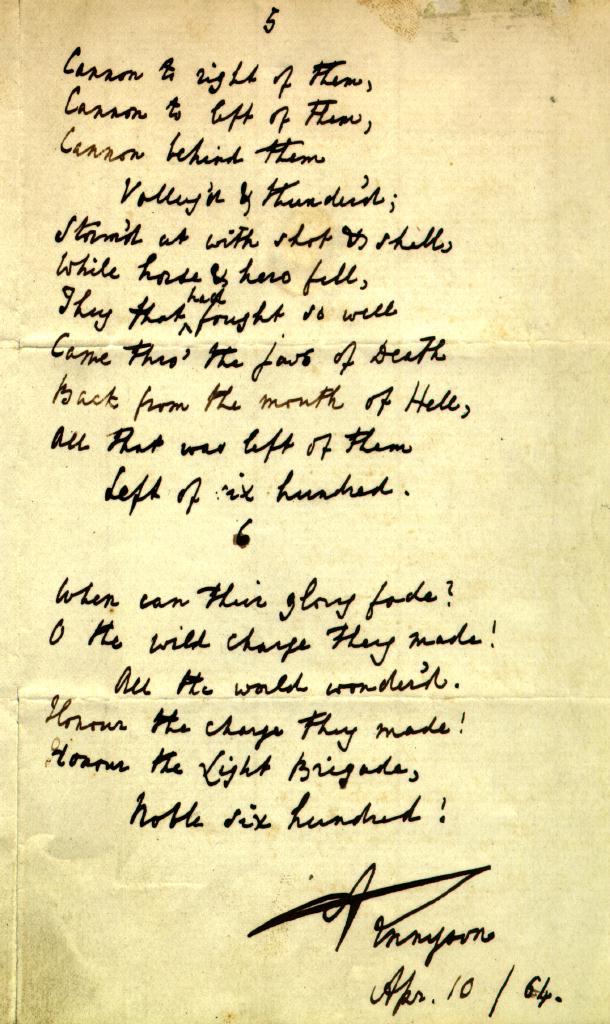 5
Cannon to right of them,
Cannon to left of them,
Cannon behind them
Volley'd & thunder'd;
Storm'd at with shot & shell,
While horse & hero fell,
They that had fought so well
Came thro' the jaws of Death
Back from the mouth of Hell,
All that was left of them
Left of six hundred.
6
When can their glory fade?
O the wild charge they made!
All the world wonder'd.
Honour the charge they made!
Honour the Light Brigade,
Noble six hundred!
A Tennyson
Apr. 10 / 64.